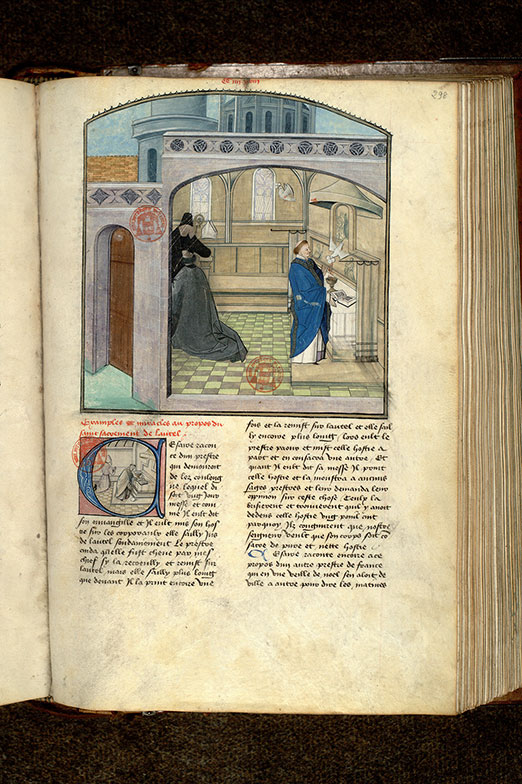 298
Examples et miracles au propos du
saint sacrement de lautel
Cesaire racon
te dun prestre
qui demouroit
de lez coulong
ne lequel di
soit ung jour
messe et com
me Il eult dit
son euuangille et Il eult mis son hos
tie sur les corporaulx elle sailly jus
de lautel soudainement Le prestre
cuida quelle fust cheue par mes
chief sy la recoeilly et remist sur
lautel mais elle sailly plus loing
que deuant Il la print encore vne
fois et la remist sur lautel et elle sail
ly encore plus loing lors eult le
prestre paour et mist celle hostie a
part et en consacra vne autre Et
quant Il eult dit sa messe Il print
celle hostie et la monstra a aucuns
sages prestres et leur demanda leur
oppinion sur ceste chose Ceulx la
briserent et trouuerent quil y auoit
dedens celle hostie ung poul ont
parquoy Ilz congnurent que nostre
seigneur veult que son corps soit co
sacre de pure et nette hostie
Cesaire raconte encore a ce
propos dun autre prestre de france
qui en vne veille de noel sen aloit de
ville a autre pour dire les matines